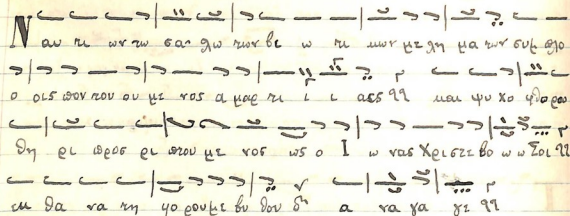 Ναυ τι ων τω σα λω των βε ω τι κων με λη μα των συμ πλο
ο οις πον του ου με νος α μαρ τι ι ι αες ϤϤ και ψυ χο φθορου
θη ρι προσ ρι πτου με νος ως ο Ι ω νας Χριστε βο ω ω Σοι ϤϤ
εκ θα να τη φο ρου με βυ θου δη α να γα γε ϤϤ